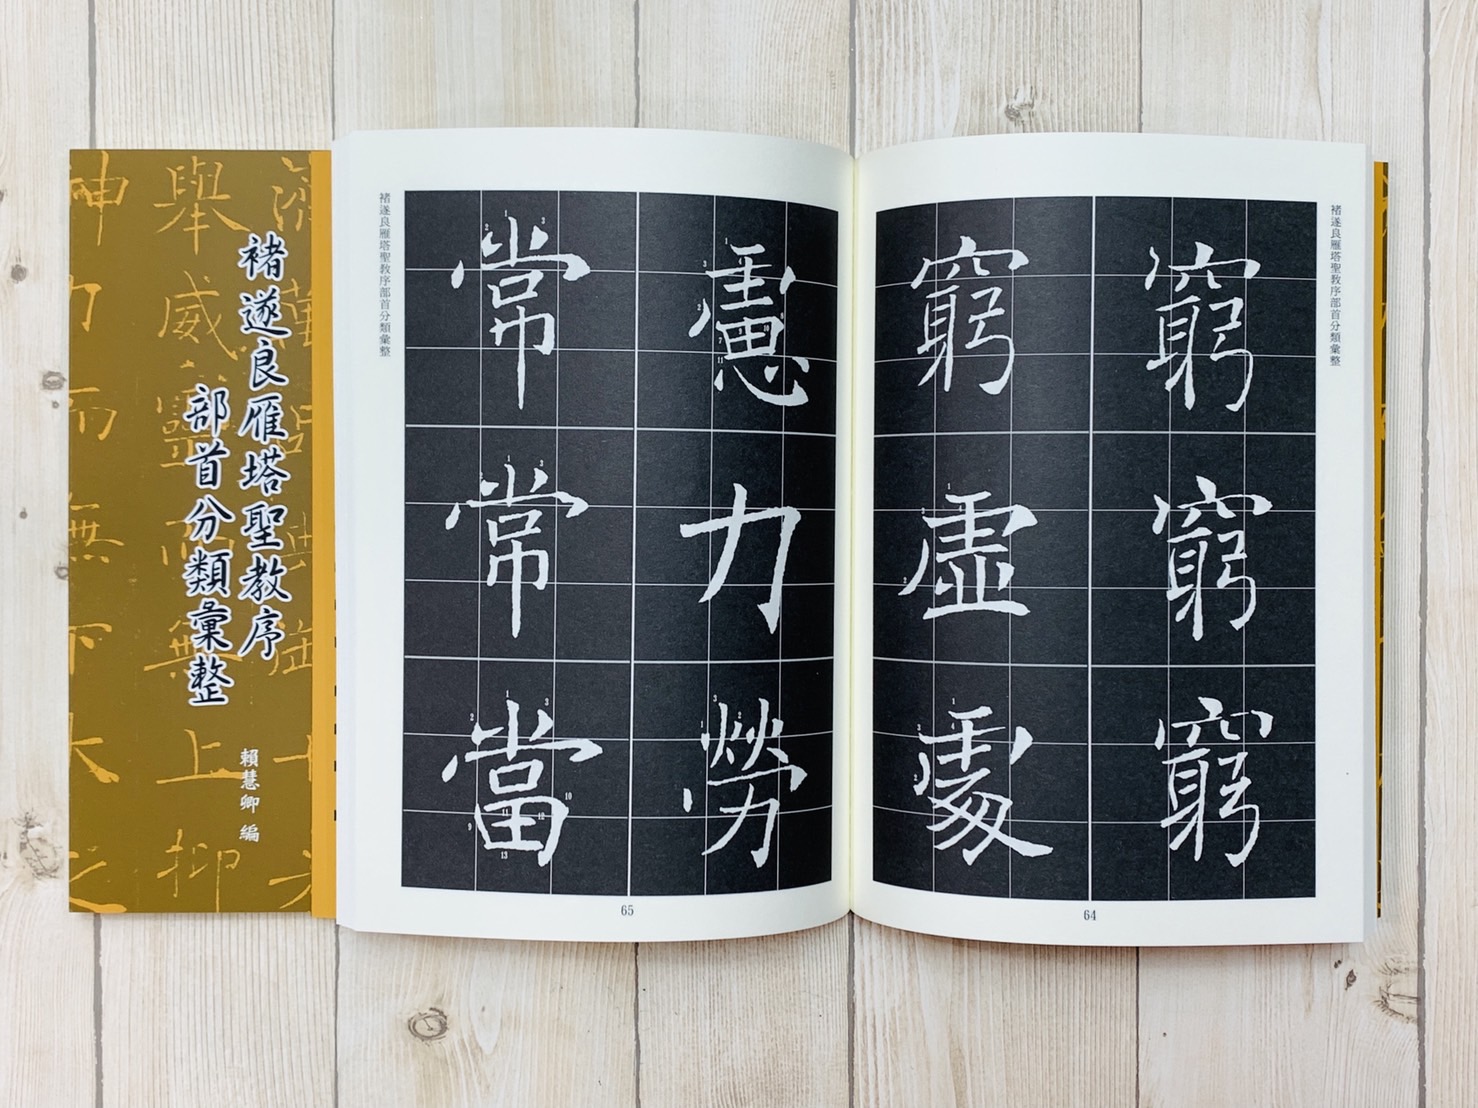 褚遂良雁塔聖教序
部首分類彙整
賴慧卿 編
褚遂良雁塔聖教序部首分類彙整
窮
窮
窮
窮
虛
處
64
慮
力
勞
常
常
當
褚遂良雁塔聖教序部首分類彙整
65